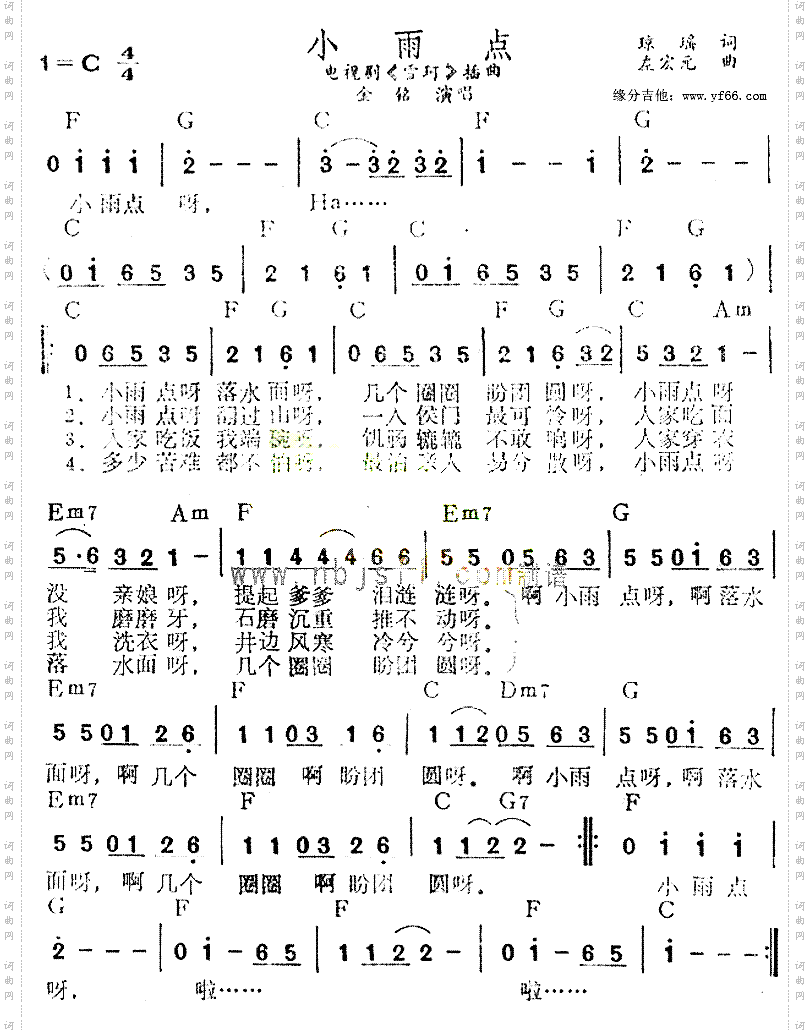 小 雨 点
1=C 4/4
电视剧《雪珂》插曲
金 铭 演唱
琼 瑶 词
左宏元 曲
缘分吉他: www.yf66.com
F G C F G
0 i i i | 2 - - - | 3 - 3 2 3 2 | i - - i | 2 - - - |
小 雨 点 呀, Ha……
C F G C F G
( 0 i 6 5 3 5 | 2 1 6 1 | 0 i 6 5 3 5 | 2 1 6 1 )
C F G C F G C Am
0 6 5 3 5 | 2 1 6 1 | 0 6 5 3 5 | 2 1 6 3 2 | 5 3 2 1 - |
1. 小雨 点呀 落水 面呀, 几个 圈圈 盼团 圆呀, 小雨点呀
2. 小雨 点呀 翻过 山呀, 一入 侯门 最可 怜呀, 人家吃面
3. 人家 吃饭 我端 碗呀, 饥肠 辘辘 不敢 响呀, 人家穿衣
4. 多少 苦难 都不 怕呀, 最怕 亲人 易分 散呀, 小雨点呀
Em7 Am F Em7 G
5·6 3 2 1 - | 1 1 4 4 4 6 6 | 5 5 0 5 6 3 | 5 5 0 i 6 3 |
www.nbjsjl.com
没 亲娘呀, 提起 爹爹 泪涟 涟呀. 啊 小雨 点呀, 啊 落水
我 磨磨牙, 石磨 沉重 推不 动呀.
我 洗衣呀, 井边 风寒 冷兮 兮呀.
落 水面呀, 几个 圈圈 盼团 圆呀.
Em7 F C Dm7 G
5 5 0 1 2 6 | 1 1 0 3 3 6 | 1 1 2 0 5 6 3 | 5 5 0 i 6 3 |
面呀, 啊 几个 圈圈 啊 盼团 圆呀. 啊 小雨 点呀, 啊 落水
Em7 F C G7 F
5 5 0 1 2 6 | 1 1 0 3 2 6 | 1 1 2 2 2 - :‖: 0 i i i |
面呀, 啊 几个 圈圈 啊 盼团 圆呀. 小 雨 点
G F F F C
2 - - - | 0 i - 6 5 | 1 1 2 2 - | 0 i - 6 5 | i - - - :‖
呀, 啦…… 啦……
词曲网